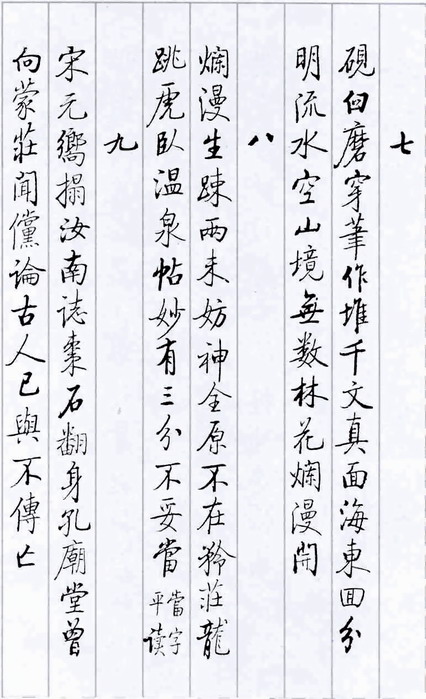 七
硯臼磨穿筆作堆千文真面海東囬分
明流水空山境無数林花爛漫開
八
爛漫生踈兩未妨神全原不在矜莊龍
跳虎臥温泉帖妙有三分不妥當當字平读
九
宋元嚮搨汝南誌棗石翻身孔廟堂曾
向蒙莊聞儻論古人已與不傳亡